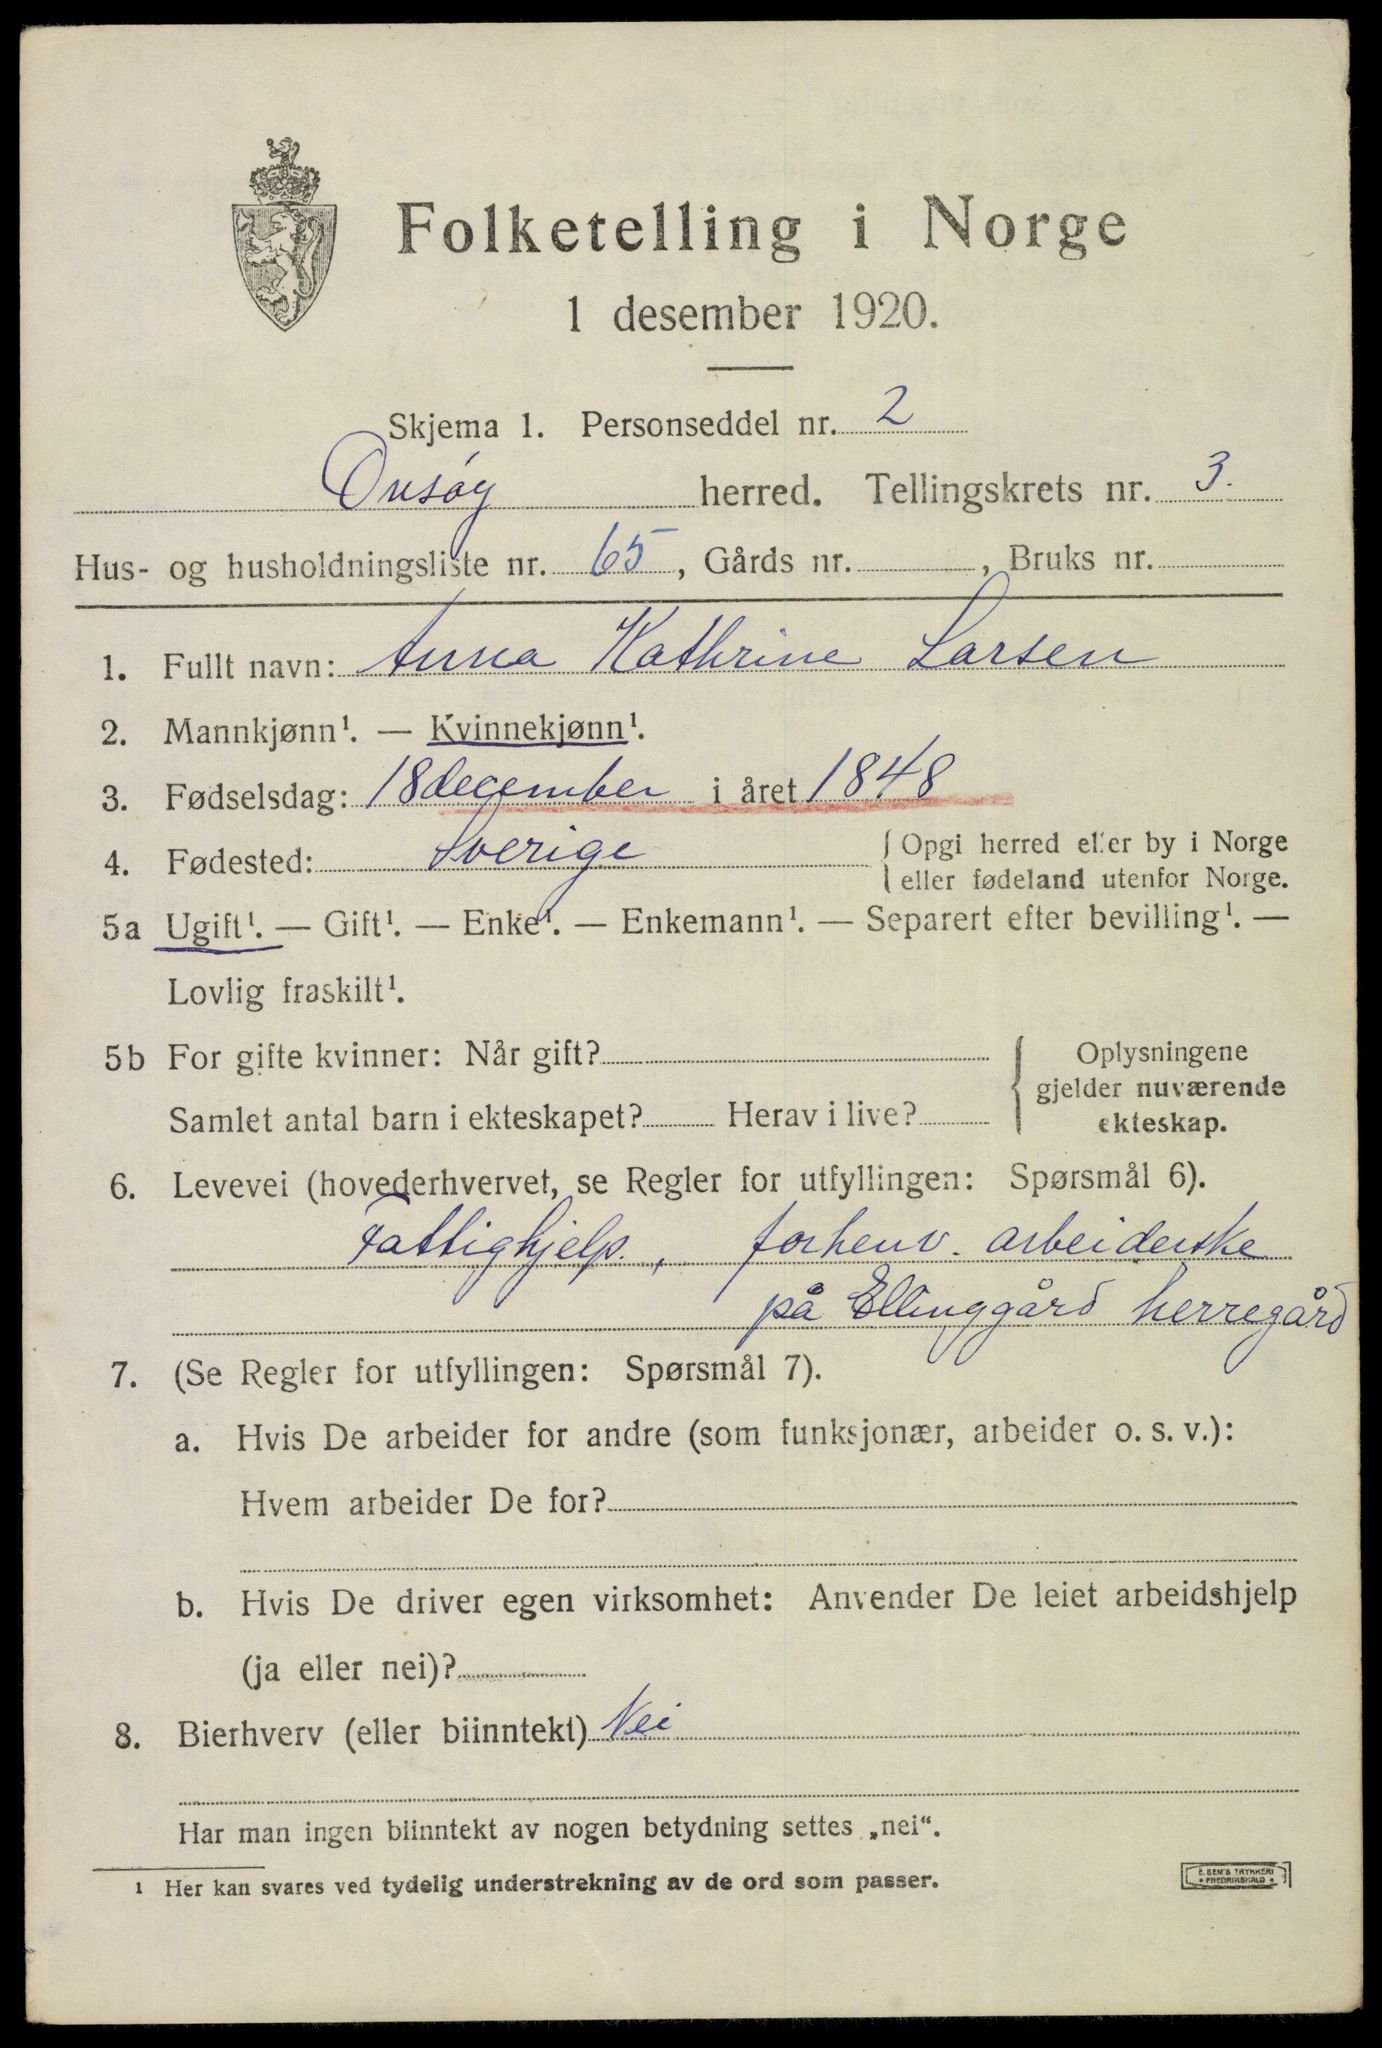 Folketelling i Norge
1 desember 1920.
Skjema 1. Personseddel nr. 2
Onsøy herred. Tellingskrets nr. 3.
Hus- og husholdningsliste nr. 65, Gårds nr. , Bruks nr.
1. Fullt navn: Anna Kathrine Larsen
2. Mannkjønn¹. — Kvinnekjønn¹.
3. Fødselsdag: 18 december i året 1848
4. Fødested: Sverige { Opgi herred eller by i Norge
eller fødeland utenfor Norge.
5a Ugift¹. — Gift¹. — Enke¹. — Enkemann¹. — Separert efter bevilling¹. —
Lovlig fraskilt¹.
5b For gifte kvinner: Når gift?
Samlet antal barn i ekteskapet? Herav i live?
{ Oplysningene
gjelder nuværende
ekteskap.
6. Levevei (hovederhvervet, se Regler for utfyllingen: Spørsmål 6).
Fattighjelp., forhenv. arbeiderske
på Elinggård herregård
7. (Se Regler for utfyllingen: Spørsmål 7).
a. Hvis De arbeider for andre (som funksjonær, arbeider o. s. v.):
Hvem arbeider De for?
b. Hvis De driver egen virksomhet: Anvender De leiet arbeidshjelp
(ja eller nei)?
8. Bierhverv (eller biinntekt) Nei
Har man ingen biinntekt av nogen betydning settes „nei“.
¹ Her kan svares ved tydelig understrekning av de ord som passer.
E. SEM'S TRYKKERI
• FREDRIKSHALD •